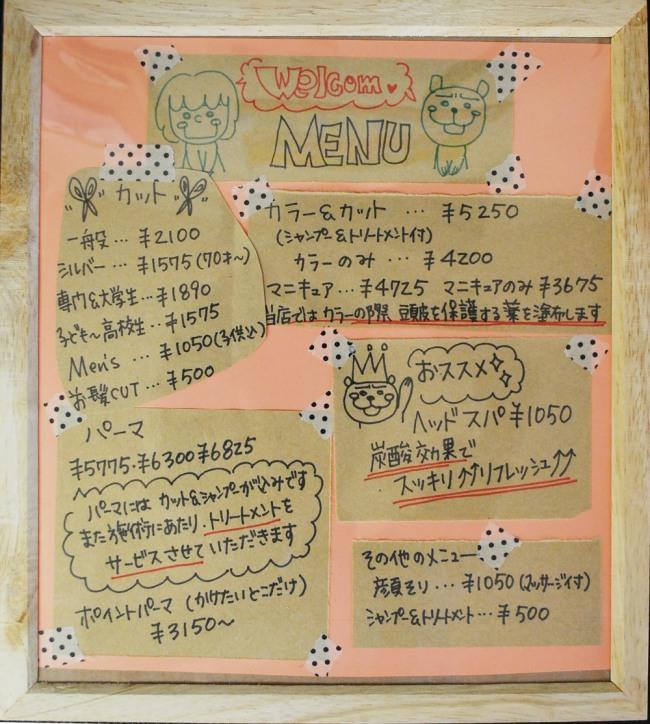 Welcom
MENU
カット
一般 … ¥2100
シルバー … ¥1575(70才〜)
専門&大学生 … ¥1890
子ども〜高校生 … ¥1575
Men's … ¥1050(子供込)
お髪CUT … ¥500
カラー&カット … ¥5250
(シャンプー&トリートメント付)
カラーのみ … ¥4200
マニキュア … ¥4725 マニキュアのみ ¥3675
当店ではカラーの際 頭皮を保護する薬を塗布します
おススメ
ヘッドスパ ¥1050
炭酸効果で
スッキリ↑↑リフレッシュ↑↑
パーマ
¥5775・¥6300 ¥6825
パーマには カット&シャンプーが込みです
また施術にあたり、トリートメントを
サービスさせていただきます
ポイントパーマ (かけたいとこだけ)
¥3150〜
その他のメニュー
顔そり … ¥1050(マッサージ付)
シャンプー&トリートメント … ¥500